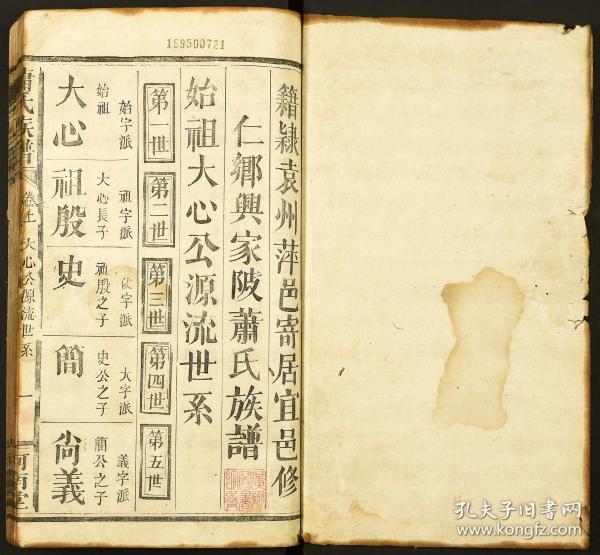 1S9500721
籍隸袁州萍邑寄居宜邑修
仁鄉興家陂蕭氏族譜
始祖大心公源流世系
第一世
第二世
第三世
第四世
第五世
始字派
始祖
大心
祖字派
大心長子
祖殷
字派
祖殷之子
史
大字派
史公之子
簡
義字派
簡公之子
尙義
蕭氏族譜
卷上
大心公源流世系
一
河南堂
孔夫子旧书网
www.kongfz.com